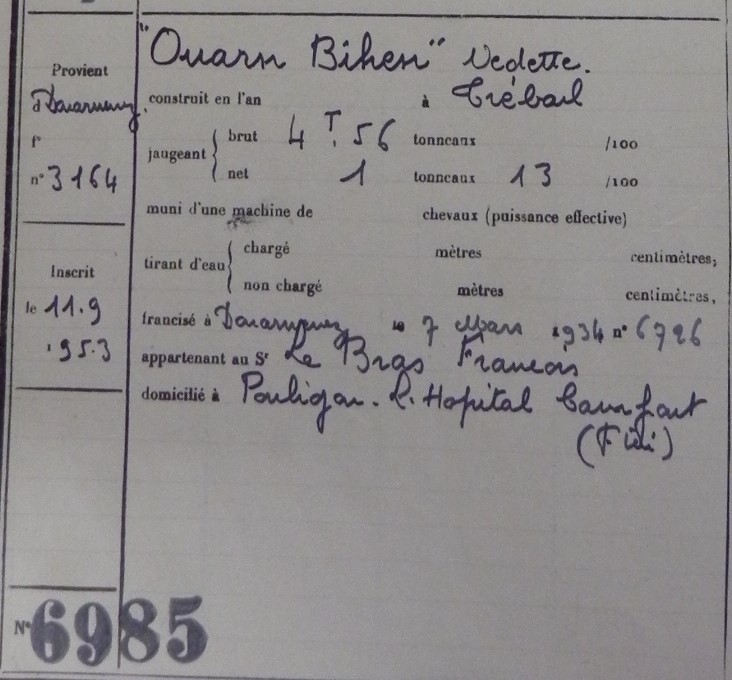 Provient
à Douarnenez
f°
n° 3164
Inscrit
le 11.9
195.3
"Ouarn Bihen" Vedette.
construit en l'an à Tréboul
jaugeant brut 4 T. 56 tonneaux /100
net 1 tonneaux 13 /100
muni d'une machine de chevaux (puissance effective)
tirant d'eau chargé mètres centimètres;
non chargé mètres centimètres,
francisé à Douarnenez le 7 Mars 1934 n° 6726
appartenant au Sr Le Bras François
domicilié à L. Hopital Camfrout
N° 6985